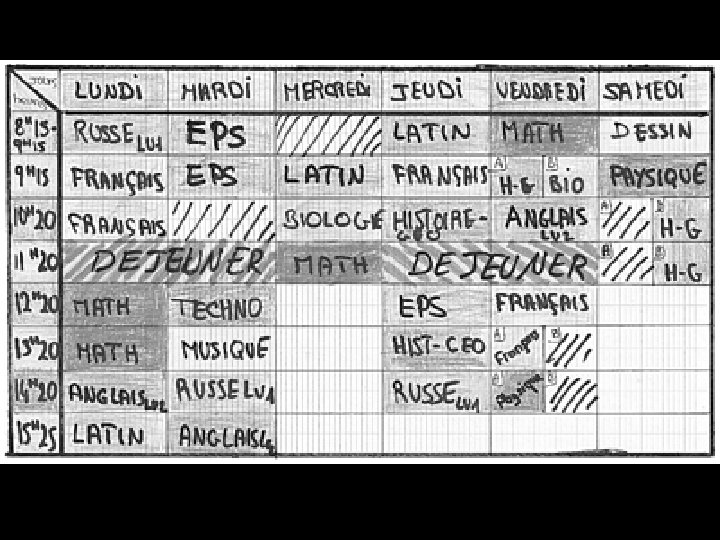 JOURS LUNDI MARDI MERCREDI JEUDI VENDREDI SAMEDI
heures
8H15- RUSSE LV1 EPS LATIN MATH DESSIN
9H15
9H15 FRANÇAIS EPS LATIN FRANSAIS A H-G B BIO PHYSIQUE
10H20 FRANSAIS BIOLOGIE HISTOIRE- ANGLAIS A B H-G
GEO LV2
11H20 DEJEUNER MATH DEJEUNER A B H-G
12H20 MATH TECHNO EPS FRANÇAIS
13H20 MATH MUSIQUE HIST-GEO A Français B
14H20 ANGLAIS LV2 RUSSE LV1 RUSSE LV1 A Physique B
15H25 LATIN ANGLAIS